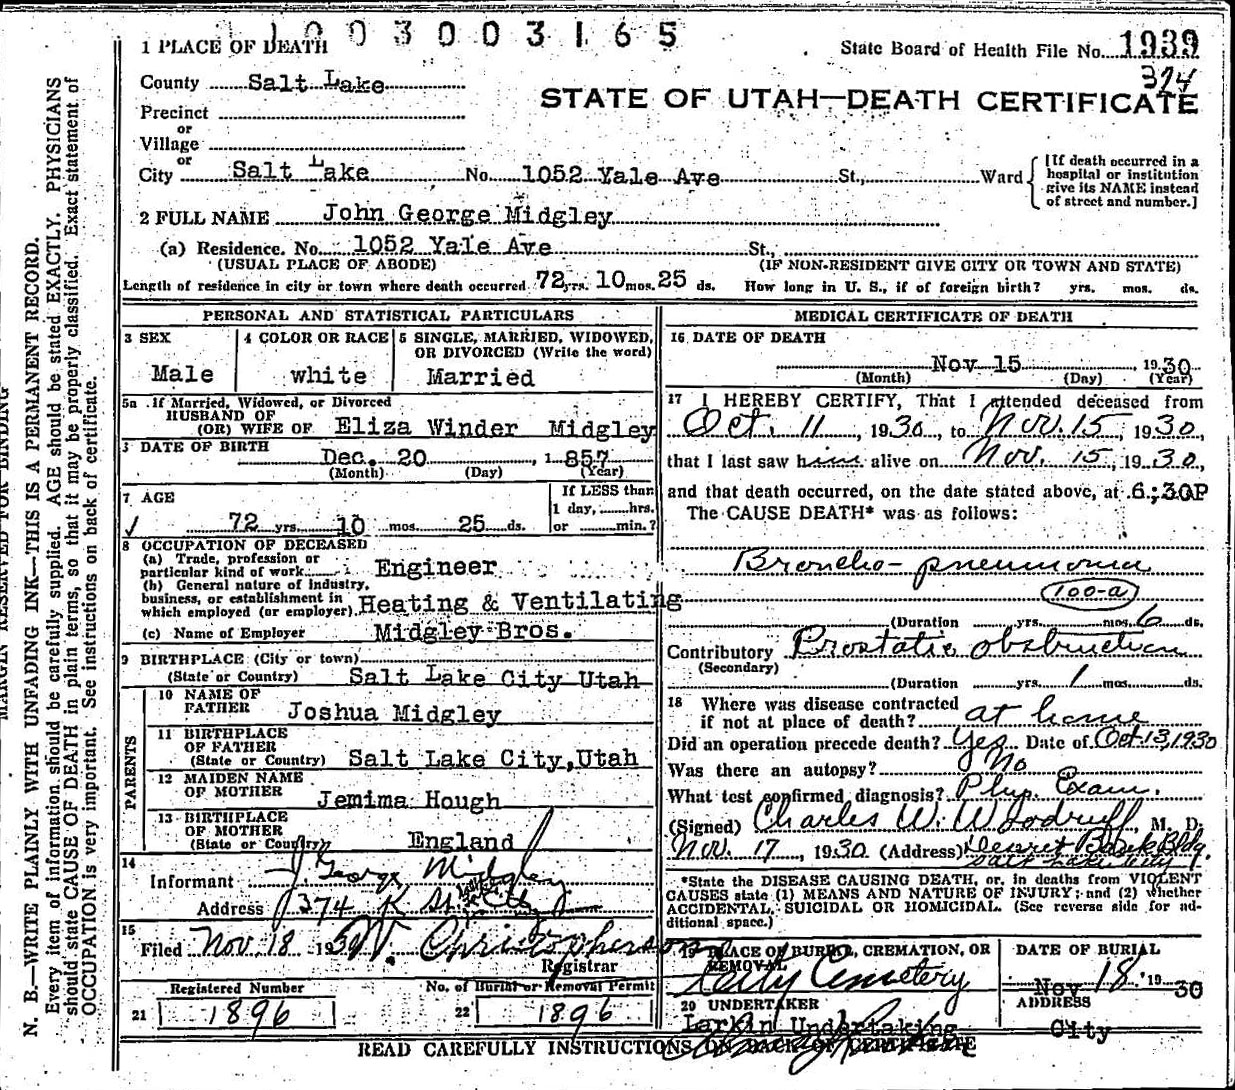 1003003165
1 PLACE OF DEATH
State Board of Health File No. 1939
374
County Salt Lake
STATE OF UTAH—DEATH CERTIFICATE
Precinct
or
Village
or
City Salt Lake No. 1052 Yale Ave St., Ward
[If death occurred in a hospital or institution give its NAME instead of street and number.]
2 FULL NAME John George Midgley
(a) Residence. No. 1052 Yale Ave St.,
(USUAL PLACE OF ABODE) (IF NON-RESIDENT GIVE CITY OR TOWN AND STATE)
Length of residence in city or town where death occurred 72 yrs. 10 mos. 25 ds. How long in U. S., if of foreign birth? yrs. mos. ds.
PERSONAL AND STATISTICAL PARTICULARS
3 SEX
Male
4 COLOR OR RACE
white
5 SINGLE, MARRIED, WIDOWED, OR DIVORCED (Write the word)
Married
5a If Married, Widowed, or Divorced
HUSBAND OF
(OR) WIFE OF Eliza Winder Midgley
DATE OF BIRTH
Dec. 20, 1857
(Month) (Day) (Year)
7 AGE
72 yrs. 10 mos. 25 ds.
If LESS than
1 day, hrs.
or min.?
8 OCCUPATION OF DECEASED
(a) Trade, profession or
particular kind of work Engineer
(b) General nature of industry,
business, or establishment in
which employed (or employer) Heating & Ventilating
(c) Name of Employer Midgley Bros.
9 BIRTHPLACE (City or town)
(State or Country) Salt Lake City Utah
PARENTS
10 NAME OF
FATHER Joshua Midgley
11 BIRTHPLACE
OF FATHER
(State or Country) Salt Lake City,Utah
12 MAIDEN NAME
OF MOTHER Jemima Hough
13 BIRTHPLACE
OF MOTHER
(State or Country) England
14
Informant J. George Midgley
Address 374 K St. City
15
Filed Nov. 18 1930 W. Christopherson
Registrar
Registered Number No. of Burial or Removal Permit
21 1896 22 1896
MEDICAL CERTIFICATE OF DEATH
16 DATE OF DEATH
Nov 15, 1930
(Month) (Day) (Year)
17 I HEREBY CERTIFY, That I attended deceased from
Oct. 11, 1930, to Nov. 15, 1930,
that I last saw him alive on Nov. 15, 1930,
and that death occurred, on the date stated above, at 6:30P
The CAUSE DEATH* was as follows:
Broncho-pneumonia
100-a
(Duration yrs. mos. 6 ds.
Contributory Prostatic obstruction
(Secondary)
(Duration yrs. 1 mos. ds.
18 Where was disease contracted
if not at place of death? at home
Did an operation precede death? Yes Date of Oct 13, 1930
Was there an autopsy? No
What test confirmed diagnosis? Phys. Exam.
(Signed) Charles W. Woodruff, M. D.
Nov. 17, 1930 (Address) Deseret Bank Bldg.
Salt Lake City
*State the DISEASE CAUSING DEATH, or, in deaths from VIOLENT
CAUSES state (1) MEANS AND NATURE OF INJURY; and (2) whether
ACCIDENTAL, SUICIDAL OR HOMICIDAL. (See reverse side for ad-
ditional space.)
19 PLACE OF BURIAL, CREMATION, OR
REMOVAL
City Cemetery
DATE OF BURIAL
Nov 18 1930
20 UNDERTAKER
Larkin Undertaking
ADDRESS
City
READ CAREFULLY INSTRUCTIONS ON BACK OF CERTIFICATE
MARGIN RESERVED FOR BINDING
N. B.—WRITE PLAINLY WITH UNFADING INK—THIS IS A PERMANENT RECORD.
Every item of information should be carefully supplied. AGE should be stated EXACTLY. PHYSICIANS
should state CAUSE OF DEATH in plain terms, so that it may be properly classified. Exact statement of
OCCUPATION is very important. See instructions on back of certificate.